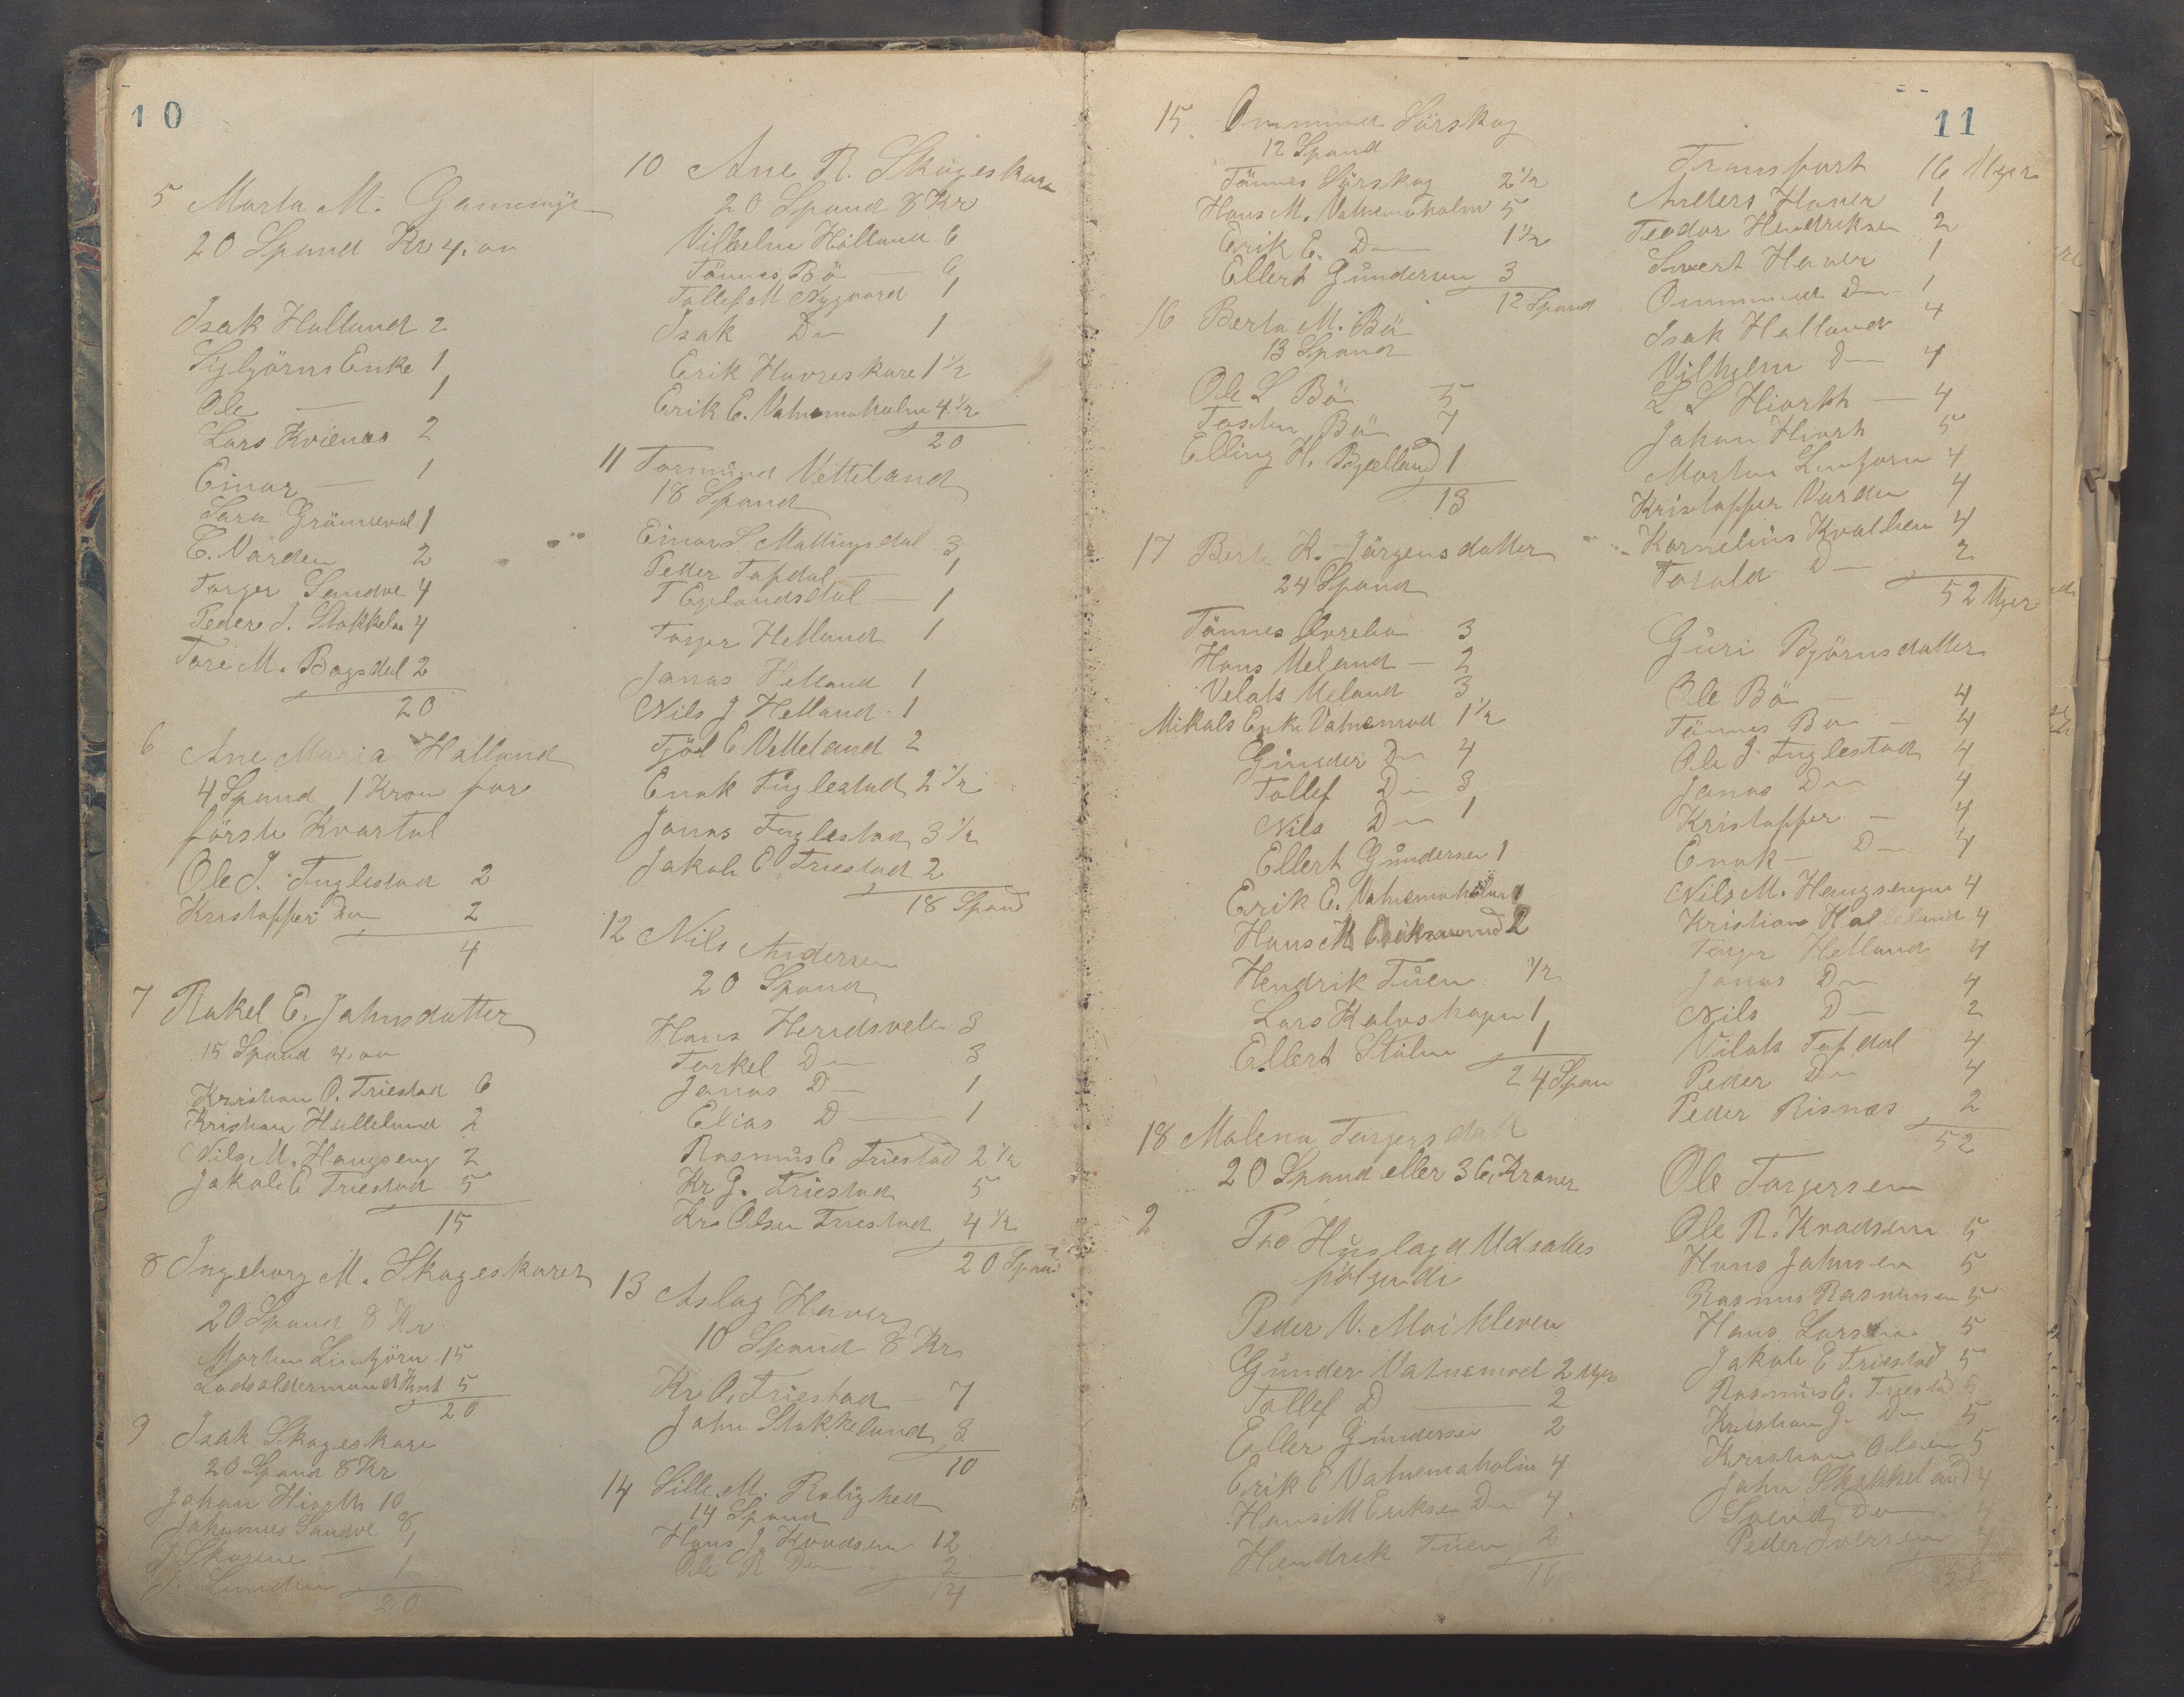 10
5 Marta M. Gamemyr
20 Spand Kr 4. oo
Isak Halland 2
Sigbjörns Enke 1
Ole — 1
Lars Kvienes 2
Einar — 1
Sara Grönneval 1
C. Varden 2
Targer Sandve 4
Peder J. Stokkeln 4
Tore M. Bogsdal 2
20
6 Ane Maria Halland
4 Spand 1 Krone for
förste Kvartal
Ole J. Fuglestad 2
Kristoffer Do 2
4
7 Rakel E. Jahnsdatter
15 Spand 4. oo
Kristian O. Friestad 6
Kristian Hellelund 2
Nils M. Haugseng 2
Jakob E Friestad 5
15
8 Ingeborg M. Skageskaret
20 Spand 8 Kr
Morten Lintjörn 15
Hiort 5
20
9 Isak Skageskare
20 Spand 8 Kr
Johan Hiorth 10
Johannes Sandve 8
J Skarene — 1
J. Lunden 1
20
10 Ane R. Skageskare
20 Spand 8 Kr
Vilhelm Hålland 6
Tönnes Bö — 6
Tollef M Nygaard 1
Isak Do 1
Erik Havreskare 1 1/2
Erik E. Vatnemoholm 4 1/2
20
11 Tormund Vetteland
18 Spand
Einar S Mattingsdal 3
Peder Tofdal — 1
T Eglandsdal — 1
Targer Hetland 1
Janas Hetland 1
Nils J Hetland 1
Tjöl E Vetteland 2
Enok Fuglestad 2 1/2
Jonas Fuglestad 3 1/2
Jakob E Friestad 2
18 Spand
12 Nils Andersen
20 Spand
Hans Herudsvela 3
Torkel Do 3
Janas D— 1
Elias D— 1
Rasmus E Friestad 2 1/2
Kr J. Friestad 5
Kr Olsen Friestad 4 1/2
20 Spand
13 Aslag Haver
10 Spand 8 Kr
Kr O. Friestad — 7
Jahn Stokkeland 3
10
14 Sille M. Rolighed
14 Spand
Hans J. Knudsen 12
Ole R Do 2
14
11
15. Ommund Sörskog
12 Spand
Tönnes Sörskog 2 1/2
Hans M. Vatnemoholm 5
Erik E. Do 1 1/2
Ellert Gundersen 3
12 Spand
16 Berta M. Bö
13 Spand
Ole L Bö 5
Tosten Bö 7
Elling H. Bjelland 1
13
17 Berta K. Jörgensdatter
24 Spand
Tönnes Övrebø 3
Hans Meland — 2
Velats Meland 3
Mikals Enke Vatnemod 1 1/2
Gunder Do 4
Tollef Do 3
Nils Do 1
Ellert Gundersen 1
Erik E. Vatnemoholm 1
Hans M 2
Hendrik Tuen 1/2
Lars Kalvshagen 1
Ellert Stölen 1
24 Span
18 Malena Targersdatt
20 Spand eller 36, Kroner
2 Pro Huslagd Udsattes
fölgende
Peder V. Moi Kleven
Gunder Vatnemod 2 Uger
Tallef D — 2
Eller Gundersen 2
Erik E Vatnemoholm 4
Hans M Eriksen Do 4
Hendrik Tuen 2
16
Transport 16 Uger
Anders Haver 1
Teodor Hendriksen 2
Sivert Haver 1
Ommund Do 1
Isak Halland 4
Vilhelm Do 4
L S Hiorth — 4
Johan Hiort 5
Morten Lintjorn 4
Kristoffer Varden 4
Kornelius Kvalhen 4
Torald D— 2
52 Uger
Guri Björnsdatter
Ole Bö — 4
Tönnes Bö — 4
Ole J. Fuglestad 4
Jonas Do 4
Kristoffer — 4
Enok — Do 4
Nils M. Haugsengen 4
Kristian Halleland 4
Targer Hetland 4
Jonas Do 4
Nils D— 2
Vilats Tofdal 4
Peder Do 4
Peder Risnæs 2
52
Ole Torgersen
Ole R. Knudsen 5
Hans Jahnsen 5
Rasmus Rasmussen 5
Hans Larsen 5
Jakob E Friestad 5
Rasmus E. Friestad 5
Kristian J. Do 5
Kristian Olsen 5
Jahn Stokkeland 4
Svend Do 4
Peder Iversen 4
52